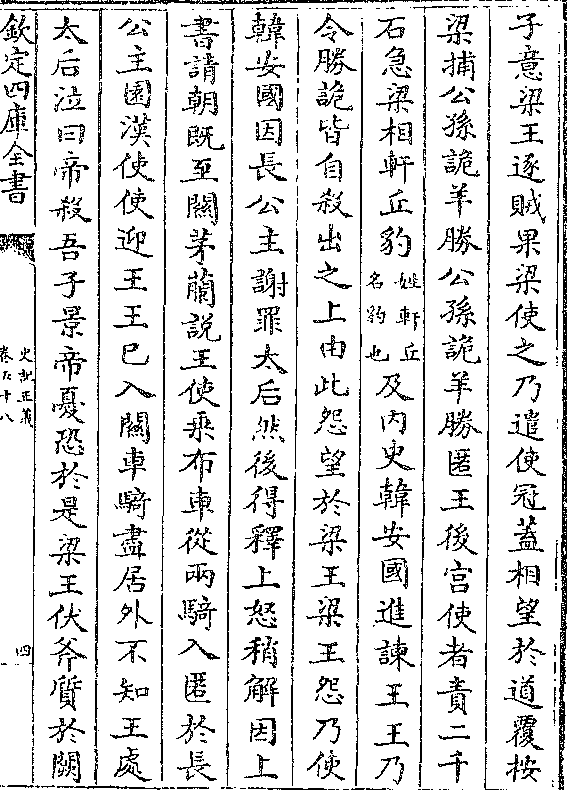 子意梁王逐賊果梁使之乃遣使冠蓋相望於道覆按
梁捕公孫詭羊勝公孫詭羊勝匿王後宫使者責二千
石急梁相軒丘豹姓軒丘名豹也及内史韓安國進諫王王乃
令勝詭皆自殺出之上由此怨望於梁王梁王怨乃使
韓安國因長公主謝罪太后然後得釋上怒稍解因上
書請朝既至關茅蘭説王使乗布車從兩騎入匿於長
公主園漢使使迎王王已入關車騎盡居外不知王處
太后泣曰帝殺吾子景帝憂恐於是梁王伏斧質於闕
欽定四庫全書
史記正義
卷五十八
四